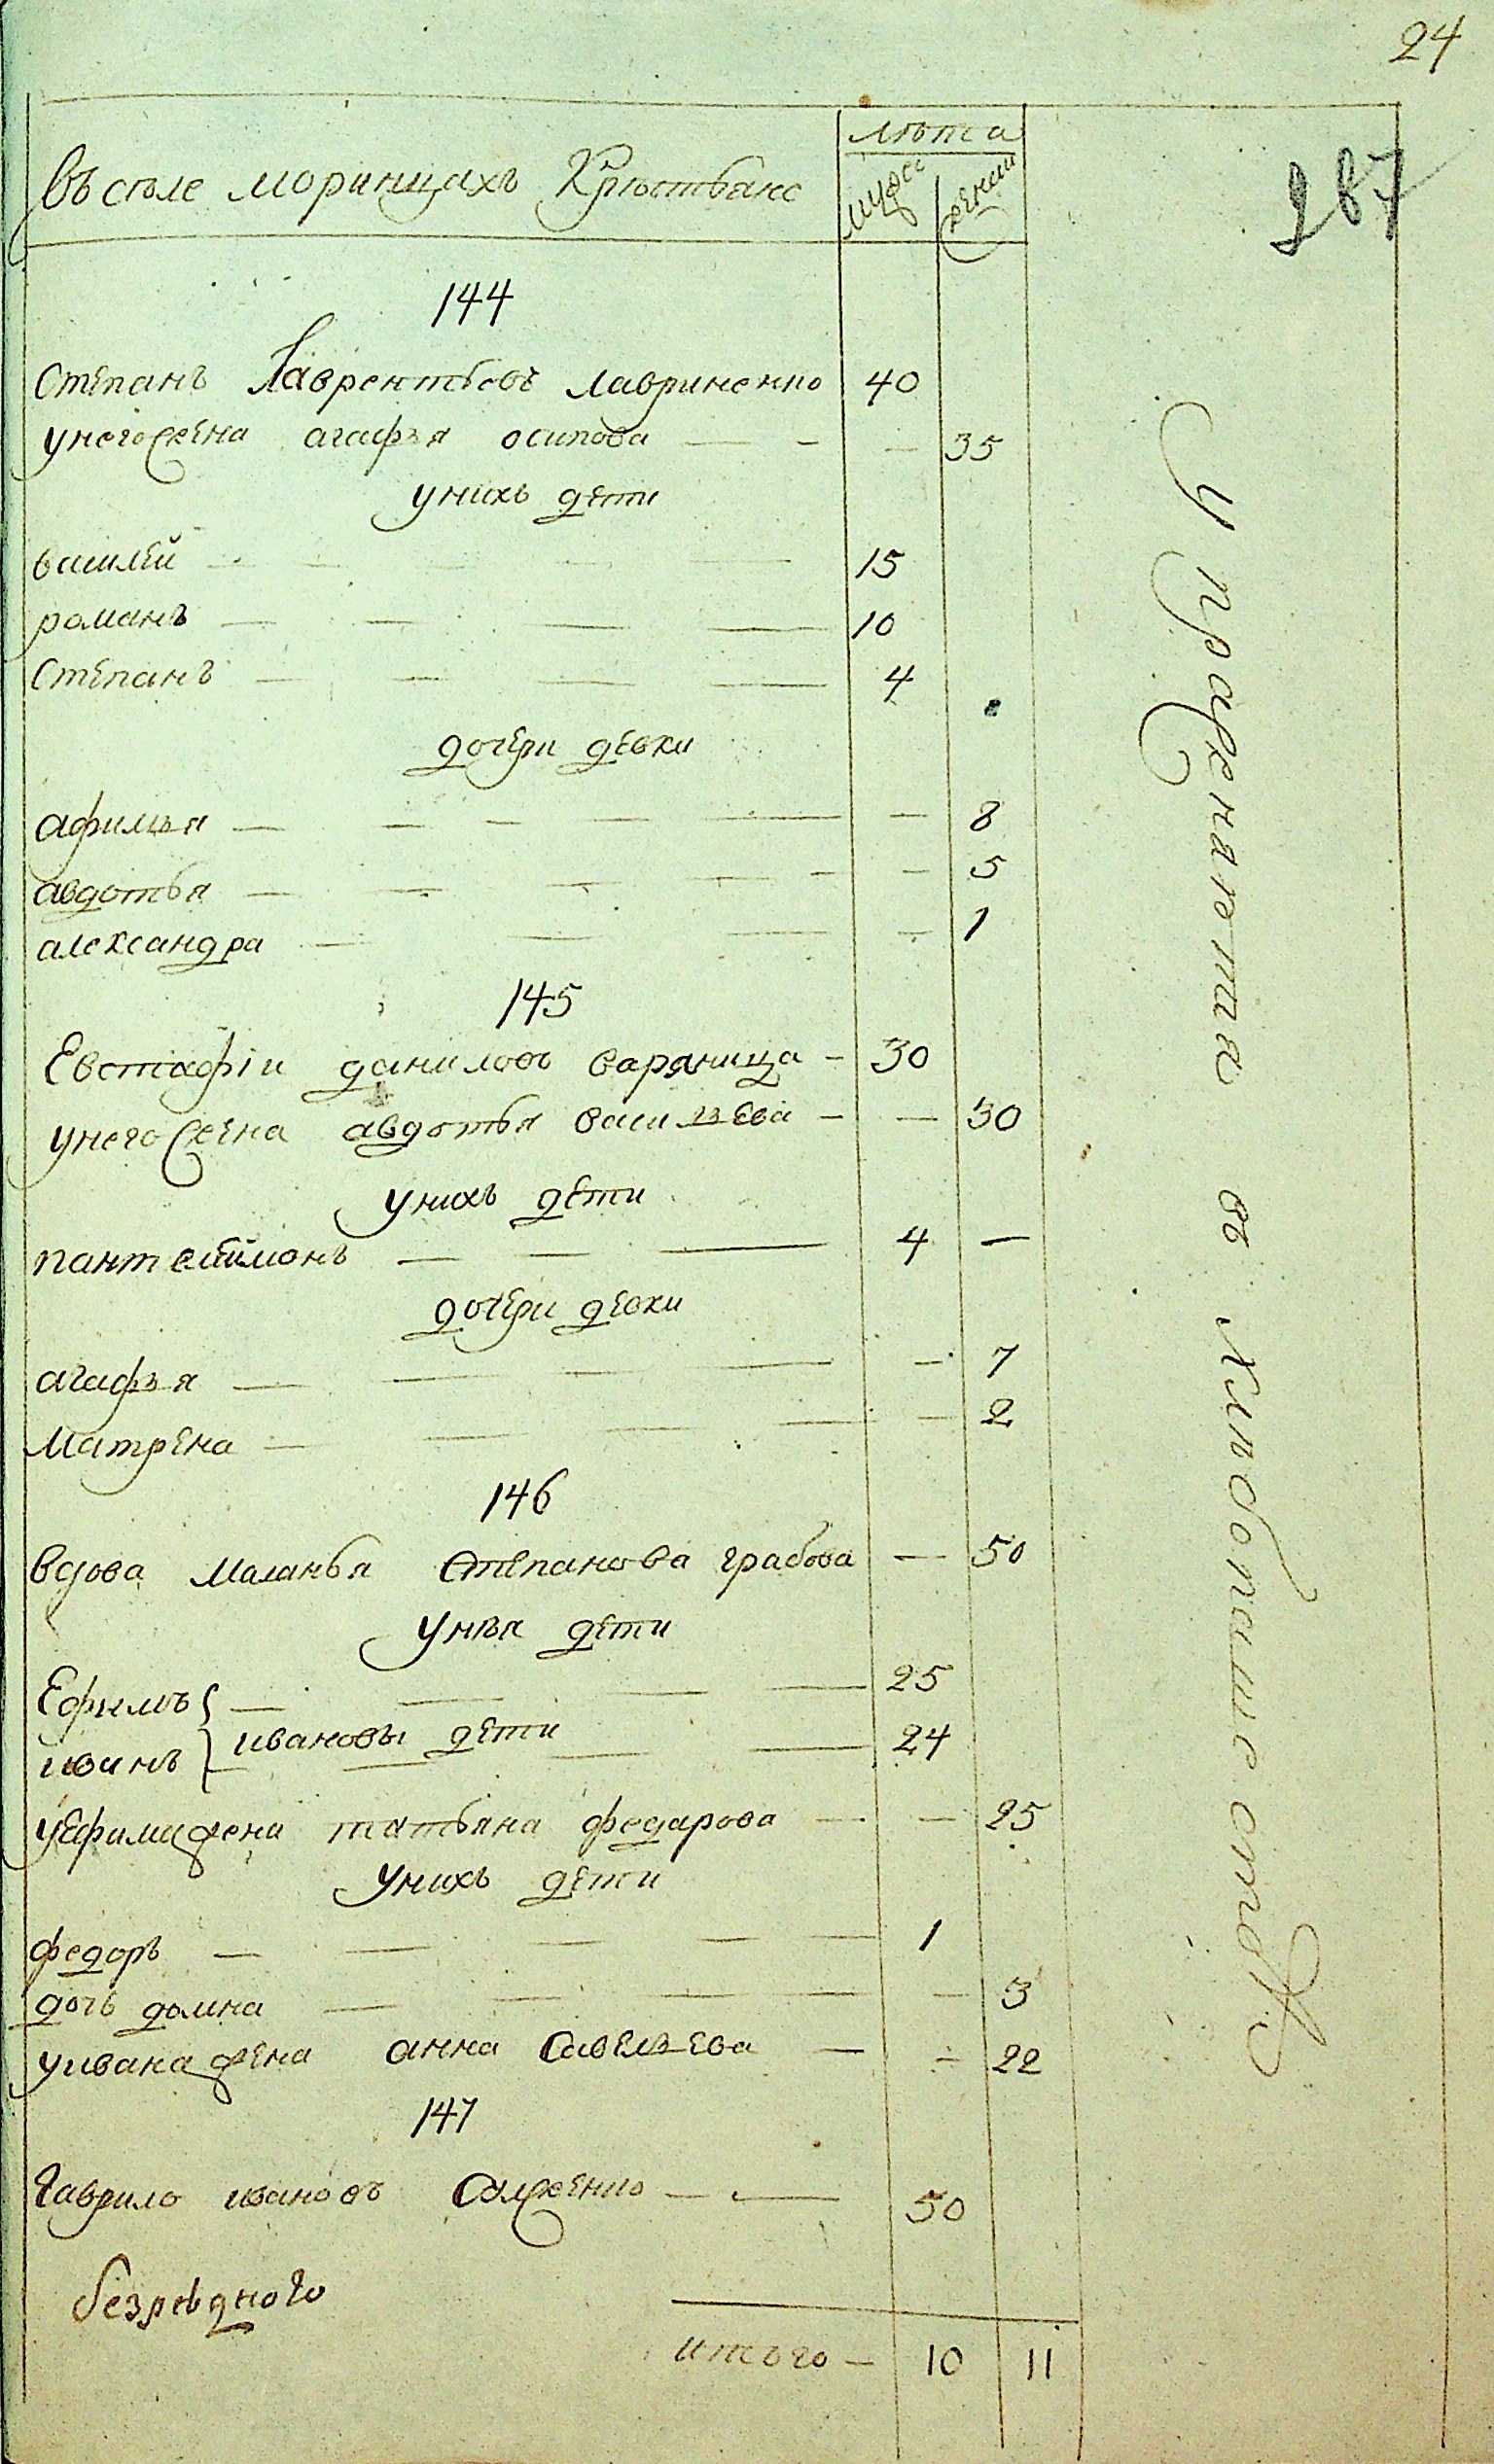 24
287
въ селе моринцахъ Крестьяне
лѣта
мужес женск
144
Степанъ Лаврентьевъ лавриненко 40
унего жена агафья осипова — — — 35
унихъ дети
василей — — — — 15
романъ — — — — 10
Степанъ — — — — 4
дочери девки
афимья — — — — — — 8
авдотья — — — — — — 5
александра — — — — 1
145
Евстафіи даниловъ вараница — 30
унего жена авдотья васильева — — 30
унихъ дети
пантелиймонъ — — — 4 —
дочери девки
агафья — — — — — 7
матрена — — — — — 2
146
вдова маланья Степанова грабова — 50
унея дети
Ефимъ — — — — 25
иванъ } ивановы дети — — — 24
уефима жена татьяна федарова — — 25
унихъ дети
федоръ — — — — — 1
дочь домна — — — — — 3
уивана жена анна савельева — — 22
147
гаврило ивановъ — — 50
безреднаго
итого — 10 11
упражнается в хлебопашество